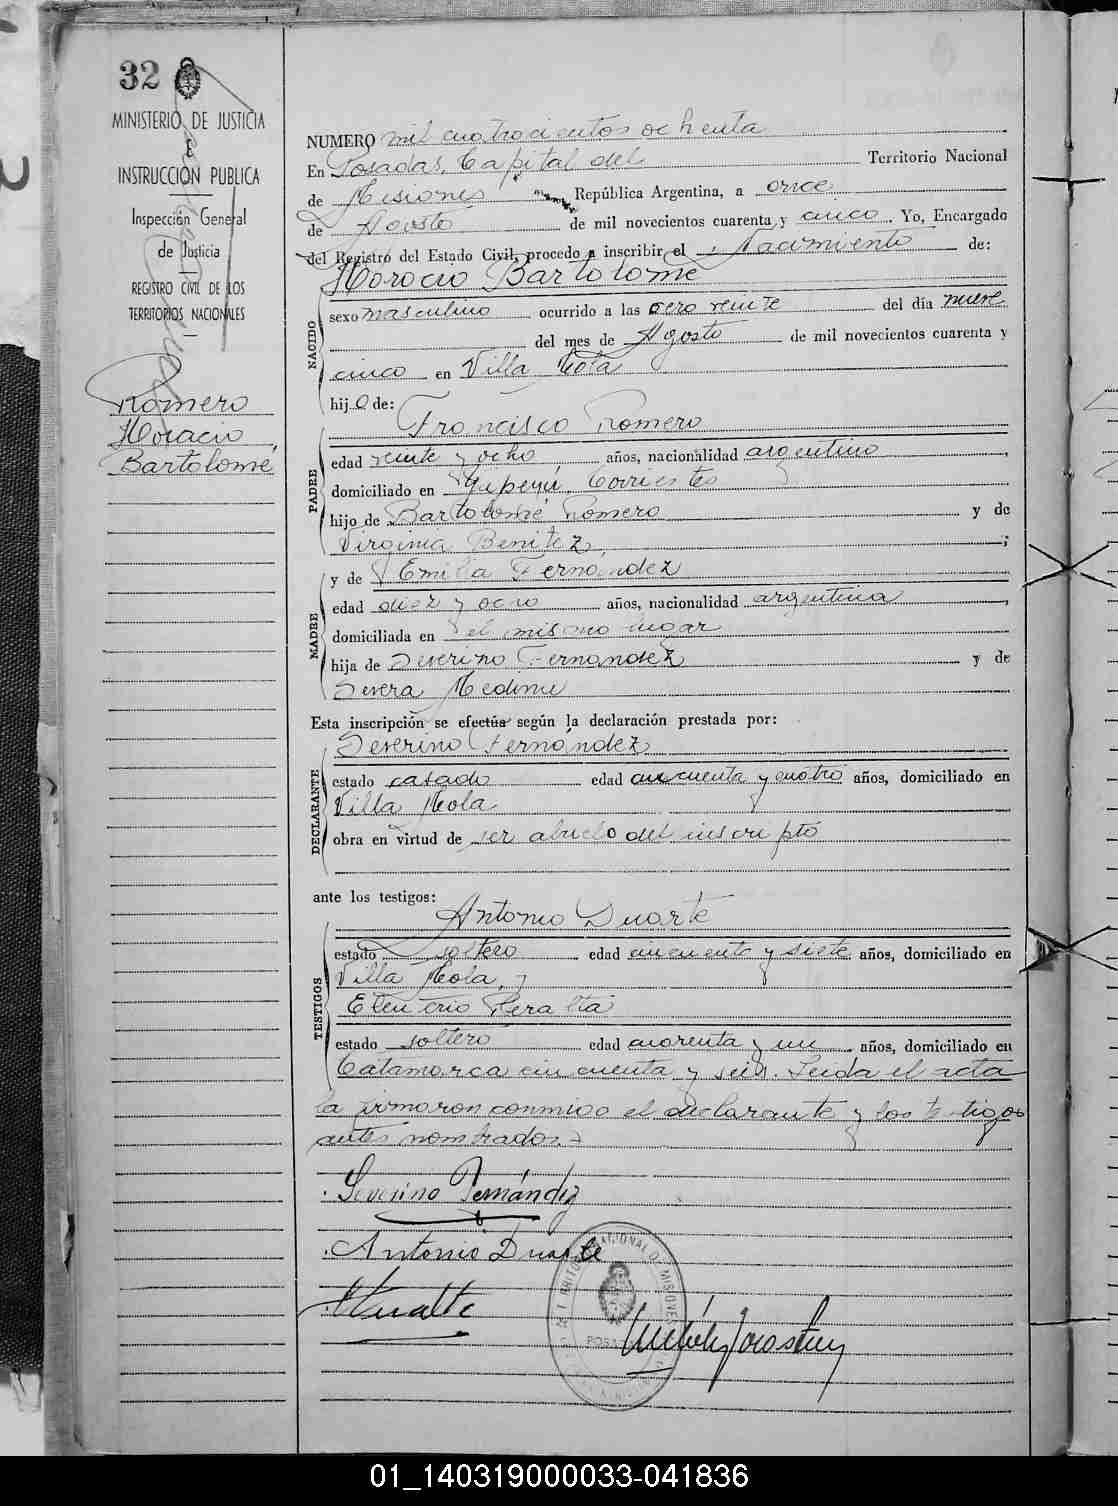 32
MINISTERIO DE JUSTICIA
E
INSTRUCCIÓN PUBLICA
Inspección General
de Justicia
REGISTRO CIVIL DE LOS
TERRITORIOS NACIONALES
Romero
Horacio
Bartolomé
NUMERO mil cuatrocientos ochenta
En Posadas, Capital del Territorio Nacional
de Misiones República Argentina, a once
de Agosto de mil novecientos cuarenta y cinco. Yo, Encargado
del Registro del Estado Civil, procedo a inscribir el Nacimiento de:
Horacio Bartolomé
NACIDO
sexo masculino ocurrido a las cero veinte del día nueve
del mes de Agosto de mil novecientos cuarenta y
cinco en Villa Mola
hijo de:
Francisco Romero
PADRE
edad veinte y ocho años, nacionalidad argentino,
domiciliado en Yapeyú, Corrientes
hijo de Bartolomé Romero y de
Virginia Benitez,;
y de Emilia Fernandez
MADRE
edad diez y ocho años, nacionalidad argentina,
domiciliada en el mismo lugar
hija de Severino Fernandez y de
Severa Medina
Esta inscripción se efectúa según la declaración prestada por:
Severino Fernández
DECLARANTE
estado casado edad cincuenta y cuatro años, domiciliado en
Villa Mola
obra en virtud de ser abuelo del inscripto
ante los testigos:
Antonio Duarte
TESTIGOS
estado soltero edad cincuenta y siete años, domiciliado en
Villa Mola, y
Eleuterio Peralta
estado soltero edad cuarenta y un años, domiciliado en
Catamarca cincuenta y seis. Leida el acta
la firmaron conmigo el declarante y los testigos
antes nombrados.
Severino Fernández
Antonio Duarte
POSADAS
01_140319000033-041836